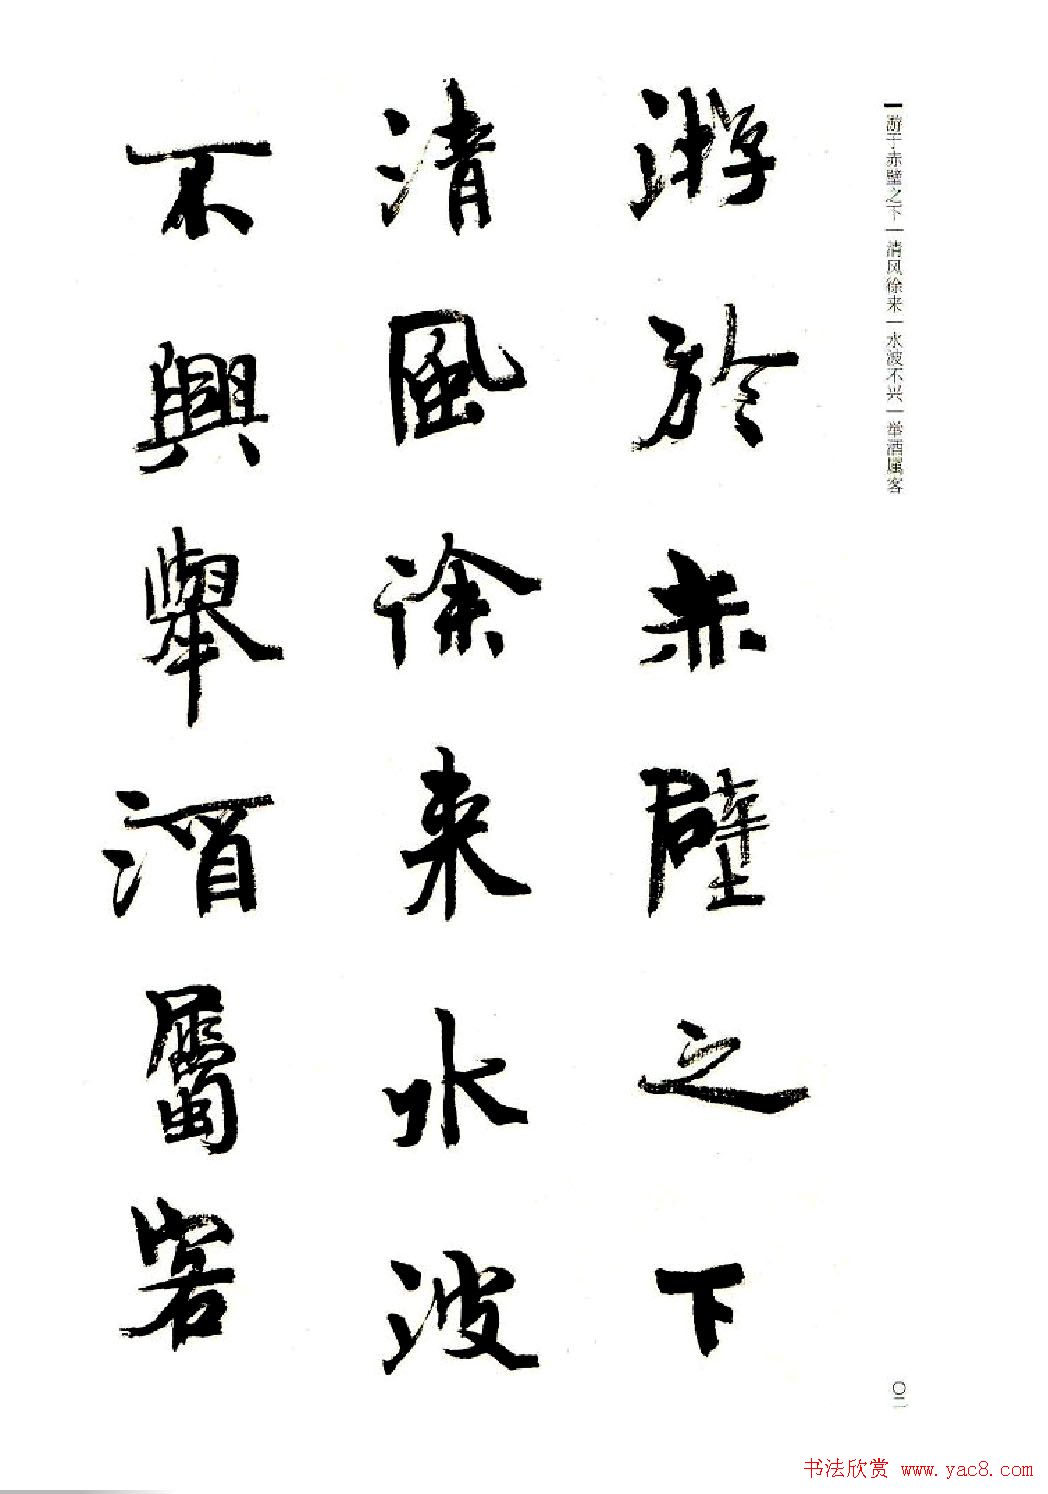 游于赤壁之下|清风徐来|水波不兴|举酒属客
游於赤壁之下
清風徐来水波
不興舉酒屬客
〇二
书法欣赏 www.yac8.com